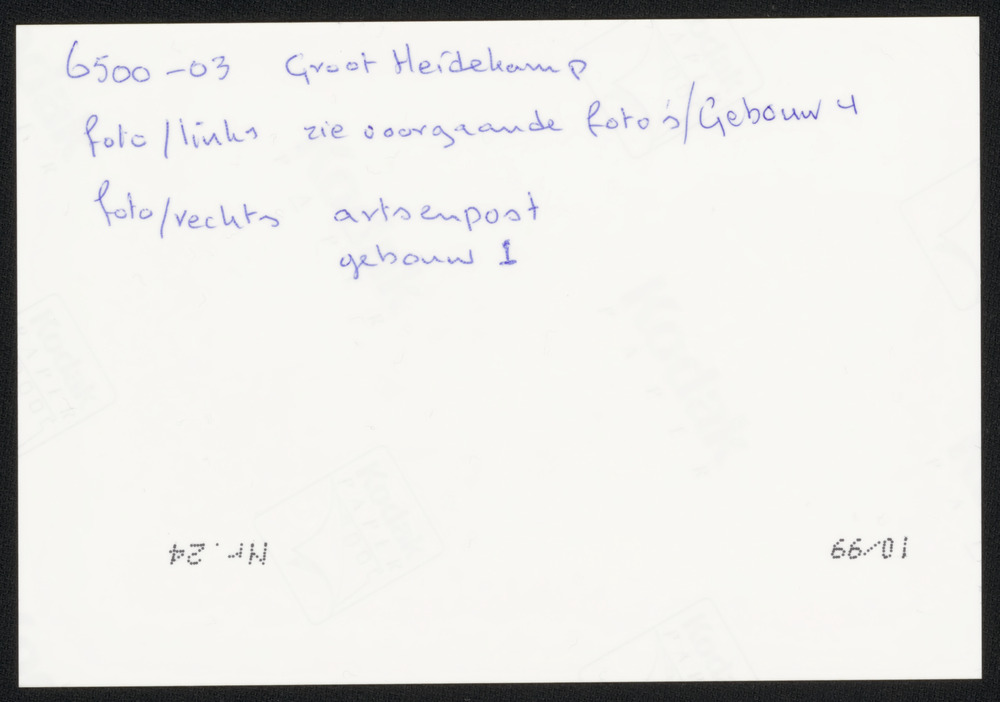 6500-03 Groot Heidekamp
foto/links zie voorgaande foto's/Gebouw 4
foto/rechts artsenpost
gebouw 1
Nr.24
10/99